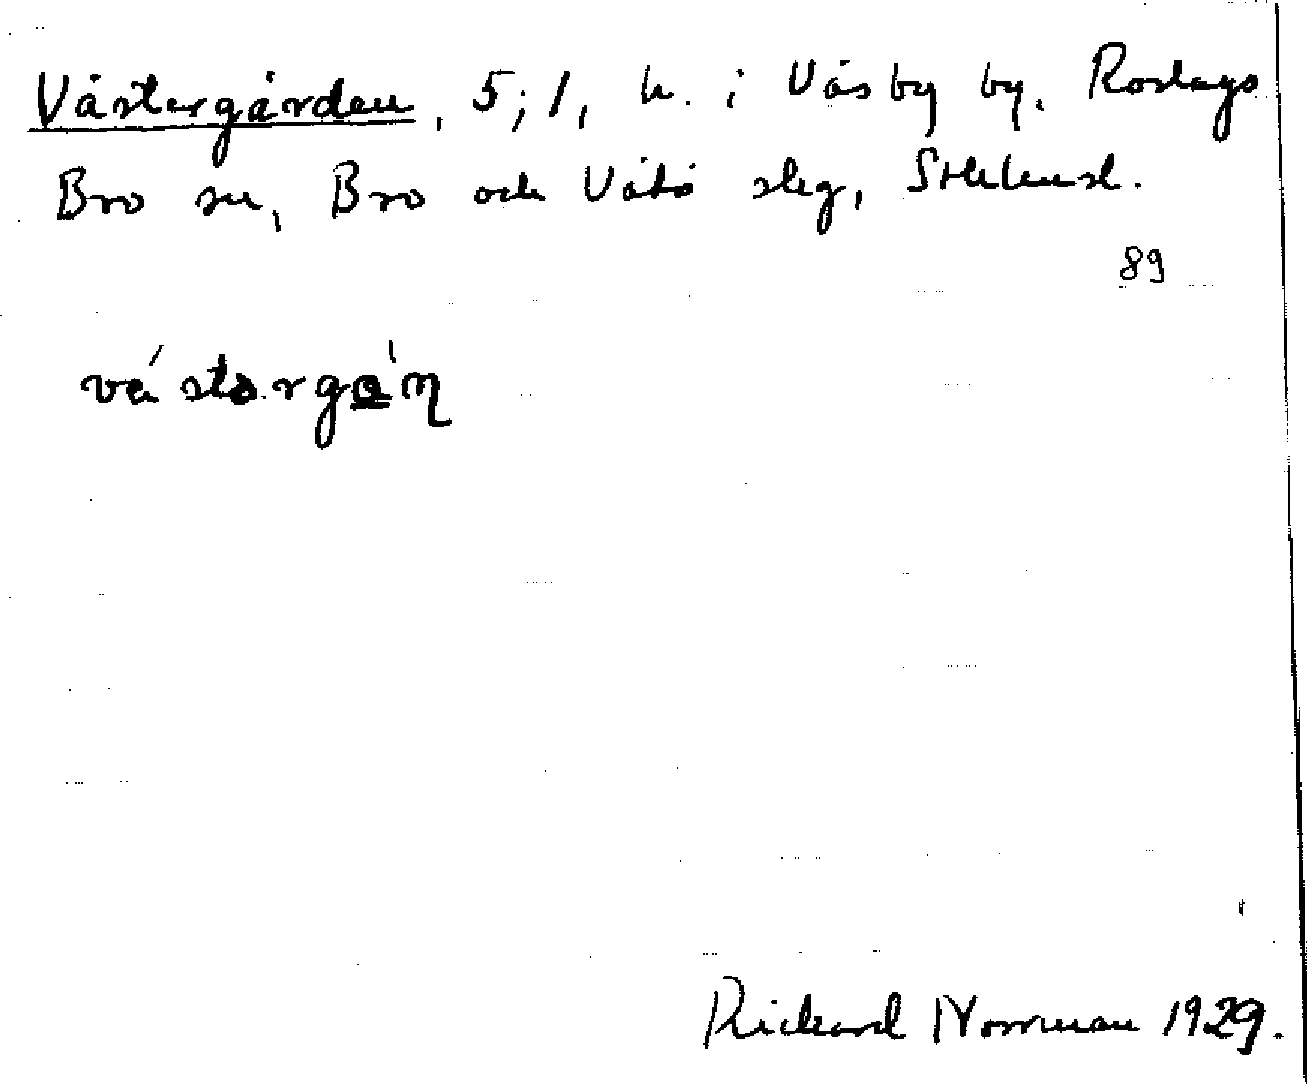 Västergården, 5;1, h. i Väsby by. Roslags
Bro sn, Bro och Vätö slg, Sthlmsl.
89
vä́stərgɑ̀ɳ
Rickard Norrman 1929.